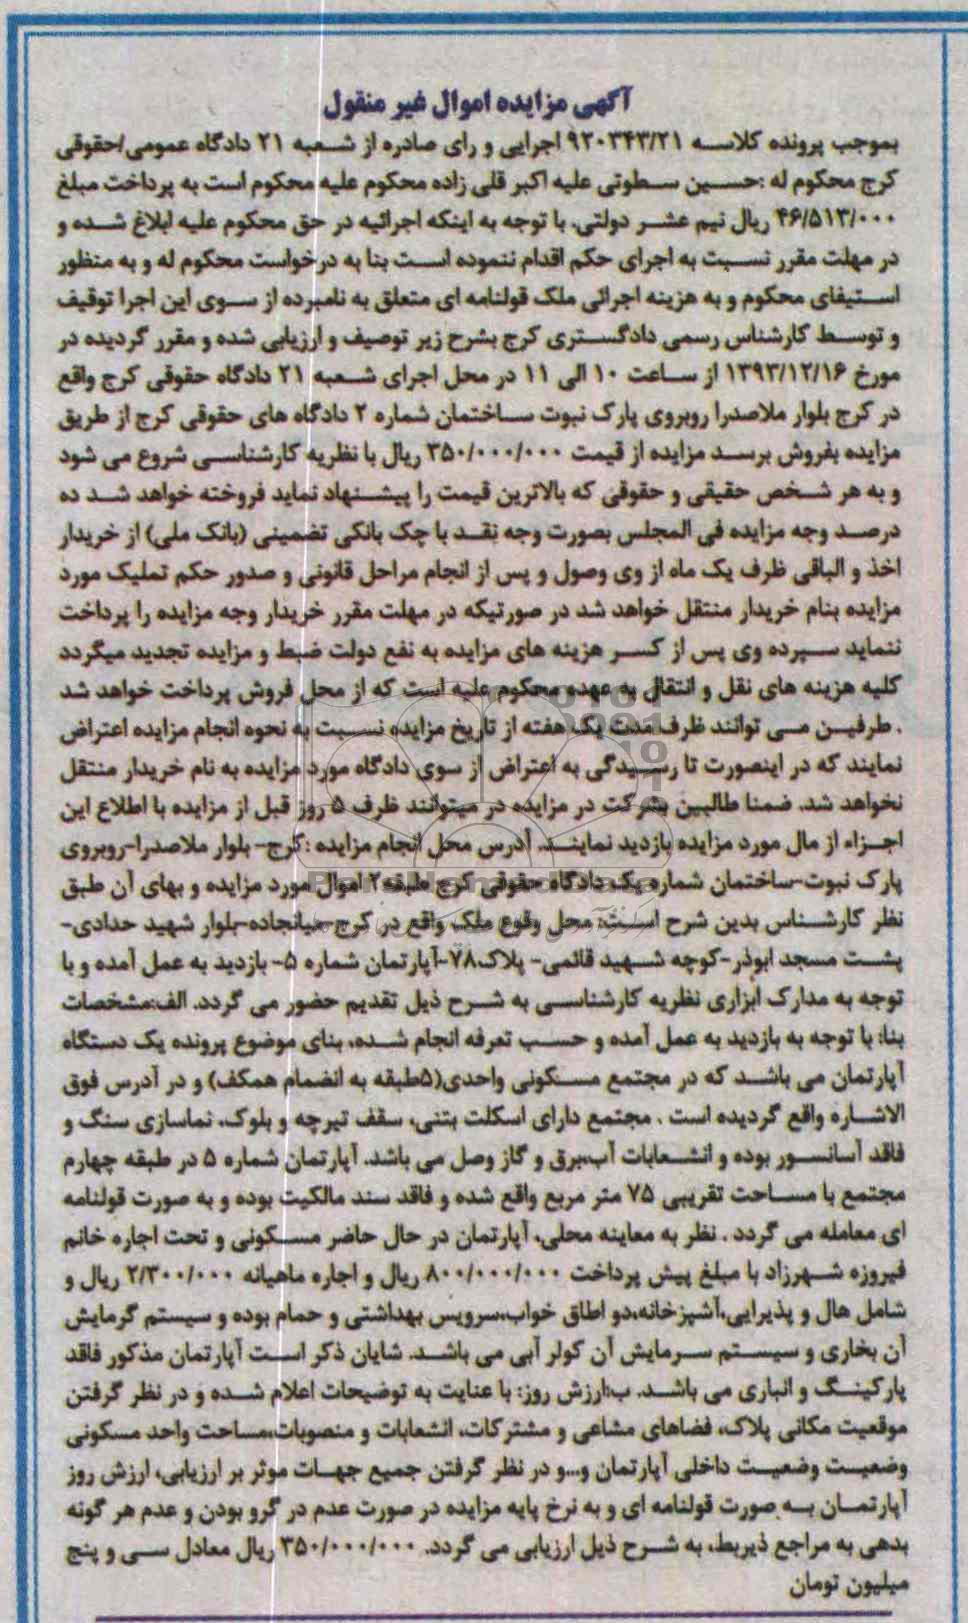 آگهی مزایده اموال غیر منقول
بموجب پرونده کلاسه ۹۲۰۳۴۳/۲۱ اجرایی و رای صادره از شعبه ۲۱ دادگاه عمومی/حقوقی
کرج محکوم له :حسین سطوتی علیه اکبر قلی زاده محکوم علیه محکوم است به پرداخت مبلغ
۴۶/۵۱۳/۰۰۰ ریال نیم عشر دولتی، با توجه به اینکه اجرائیه در حق محکوم علیه ابلاغ شده و
در مهلت مقرر نسبت به اجرای حکم اقدام ننموده است بنا به درخواست محکوم له و به منظور
استیفای محکوم و به هزینه اجرائی ملک قولنامه ای متعلق به نامبرده از سوی این اجرا توقیف
و توسط کارشناس رسمی دادگستری کرج بشرح زیر توصیف و ارزیابی شده و مقرر گردیده در
مورخ ۱۳۹۳/۱۲/۱۶ از ساعت ۱۰ الی ۱۱ در محل اجرای شعبه ۲۱ دادگاه حقوقی کرج واقع
در کرج بلوار ملاصدرا روبروی پارک نبوت ساختمان شماره ۲ دادگاه های حقوقی کرج از طریق
مزایده بفروش برسد مزایده از قیمت ۳۵۰/۰۰۰/۰۰۰ ریال با نظریه کارشناسی شروع می شود
و به هر شخص حقیقی و حقوقی که بالاترین قیمت را پیشنهاد نماید فروخته خواهد شد ده
درصد وجه مزایده فی المجلس بصورت وجه نقد با چک بانکی تضمینی (بانک ملی) از خریدار
اخذ و الباقی ظرف یک ماه از وی وصول و پس از انجام مراحل قانونی و صدور حکم تملیک مورد
مزایده بنام خریدار منتقل خواهد شد در صورتیکه در مهلت مقرر خریدار وجه مزایده را پرداخت
ننماید سپرده وی پس از کسر هزینه های مزایده به نفع دولت ضبط و مزایده تجدید میگردد
کلیه هزینه های نقل و انتقال به عهده محکوم علیه است که از محل فروش پرداخت خواهد شد
. طرفین می توانند ظرف مدت یک هفته از تاریخ مزایده نسبت به نحوه انجام مزایده اعتراض
نمایند که در اینصورت تا رسیدگی به اعتراض از سوی دادگاه مورد مزایده به نام خریدار منتقل
نخواهد شد. ضمنا طالبین بشرکت در مزایده در میتوانند ظرف ۵ روز قبل از مزایده با اطلاع این
اجزاء از مال مورد مزایده بازدید نمایند. آدرس محل انجام مزایده :کرج- بلوار ملاصدرا-روبروی
پارک نبوت-ساختمان شماره یک دادگاه حقوقی کرج طبقه ۲ اموال مورد مزایده و بهای آن طبق
نظر کارشناس بدین شرح است: محل وقوع ملک واقع در کرج-میانجاده-بلوار شهید حدادی-
پشت مسجد ابوذر-کوچه شهید قائمی- پلاک۷۸-آپارتمان شماره ۵- بازدید به عمل آمده و با
توجه به مدارک ابزاری نظریه کارشناسی به شرح ذیل تقدیم حضور می گردد. الف:مشخصات
بنا: با توجه به بازدید به عمل آمده و حسب تعرفه انجام شده، بنای موضوع پرونده یک دستگاه
آپارتمان می باشد که در مجتمع مسکونی واحدی(۵طبقه به انضمام همکف) و در آدرس فوق
الاشاره واقع گردیده است . مجتمع دارای اسکلت بتنی، سقف تیرچه و بلوک، نماسازی سنگ و
فاقد آسانسور بوده و انشعابات آب،برق و گاز وصل می باشد. آپارتمان شماره ۵ در طبقه چهارم
مجتمع با مساحت تقریبی ۷۵ متر مربع واقع شده و فاقد سند مالکیت بوده و به صورت قولنامه
ای معامله می گردد . نظر به معاینه محلی، آپارتمان در حال حاضر مسکونی و تحت اجاره خانم
فیروزه شهرزاد با مبلغ پیش پرداخت ۸۰۰/۰۰۰/۰۰۰ ریال و اجاره ماهیانه ۲/۳۰۰/۰۰۰ ریال و
شامل هال و پذیرایی،آشپزخانه،دو اطاق خواب،سرویس بهداشتی و حمام بوده و سیستم گرمایش
آن بخاری و سیستم سرمایش آن کولر آبی می باشد. شایان ذکر است آپارتمان مذکور فاقد
پارکینگ و انباری می باشد. ب:ارزش روز: با عنایت به توضیحات اعلام شده و در نظر گرفتن
موقعیت مکانی پلاک، فضاهای مشاعی و مشترکات، انشعابات و منصوبات،مساحت واحد مسکونی
وضعیت وضعیت داخلی آپارتمان و...و در نظر گرفتن جمیع جهات موثر بر ارزیابی، ارزش روز
آپارتمان به صورت قولنامه ای و به نرخ پایه مزایده در صورت عدم در گرو بودن و عدم هر گونه
بدهی به مراجع ذیربط، به شرح ذیل ارزیابی می گردد. ۳۵۰/۰۰۰/۰۰۰ ریال معادل سی و پنج
میلیون تومان